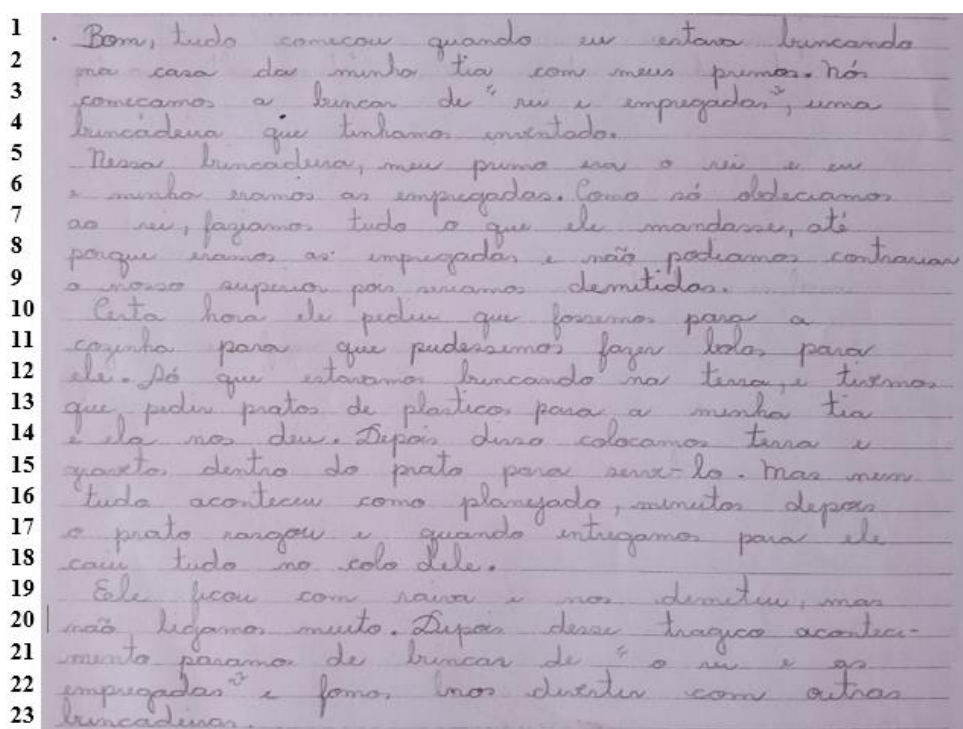 1 Bom, tudo começou quando eu estava brincando
2 na casa da minha tia com meus primos. Nós
3 começamos a brincar de "rei e empregadas", uma
4 brincadeira que tinhamos inventado.
5 Nessa brincadeira, meu primo era o rei e eu
6 e minha eramos as empregadas. Como só obdeciamos
7 ao rei, faziamos tudo o que ele mandasse, até
8 porque eramos as empregadas e não podiamos contrariar
9 o nosso superior pois seriamos demitidas.
10 Certa hora ele pediu que fossemos para a
11 cozinha para que pudessemos fazer bolos para
12 ele. Só que estavamos brincando na terra, e tivemos
13 que pedir pratos de plasticos para a minha tia
14 e ela nos deu. Depois disso colocamos terra e
15 gravetos dentro do prato para servi-lo. Mas nem
16 tudo aconteceu como planejado, minutos depois
17 o prato rasgou e quando entregamos para ele
18 caiu tudo no colo dele.
19 Ele ficou com raiva e nos demitiu, mas
20 não ligamos muito. Depois desse tragico aconteci-
21 mento paramos de brincar de "o rei e as
22 empregadas" e fomos nos divertir com outras
23 brincadeiras.